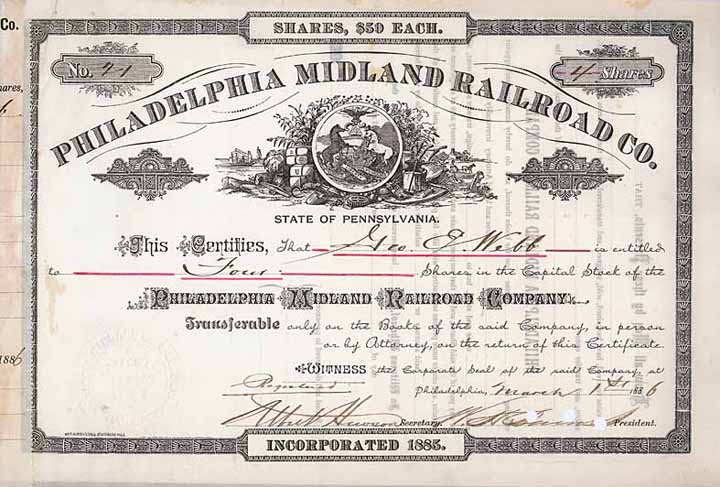 Co.
hares,
6
1886
SHARES, $50 EACH.
No. 41
4 Shares
PHILADELPHIA MIDLAND RAILROAD CO.
STATE OF PENNSYLVANIA.
This Certifies, That Geo. E. Webb is entitled
to Four Shares in the Capital Stock of the
PHILADELPHIA MIDLAND RAILROAD COMPANY.
Transferable only on the Books of the said Company, in person
or by Attorney, on the return of this Certificate.
WITNESS the Corporate Seal of the said Company, at
Registered Philadelphia, March 1st 1886
Secretary. President.
INCORPORATED 1885.